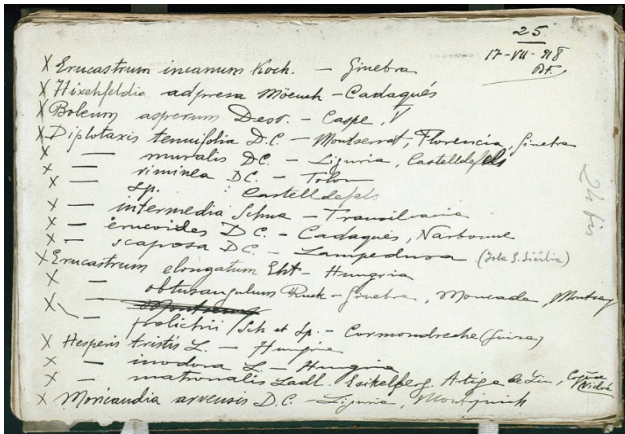 25
17-VII-98
X Erucastrum incanum Koch. - Ginebra
X Hirchfeldia adpresa Möench - Cadaqués
X Boleum asperum Desv. - Caspe, V
X Diplotaxis tenuifolia D.C. - Montserrat, Florencia, Ginebra
X — muralis DC. - Liguria, Castelldefels
X — viminea DC - Tolon
X — sp. : Castelldefels
X — intermedia Schu - Transilvania
X — erucoides D.C - Cadaqués, Narbonne
X — scaposa DC - Lampedusa (Isla S. Sicilia)
X Erucastrum elongatum Eht - Hungria
X — obtusangulum - Ginebra, Moncada,
X frolichii Sch et Sp. - Cormondreche
X Hesperis tristis L. - Hungria
X — inodora L - Hungria
X — matronalis Ladl.
X Moricandia arvensis D.C - Liguria, Montjuich
24 fin